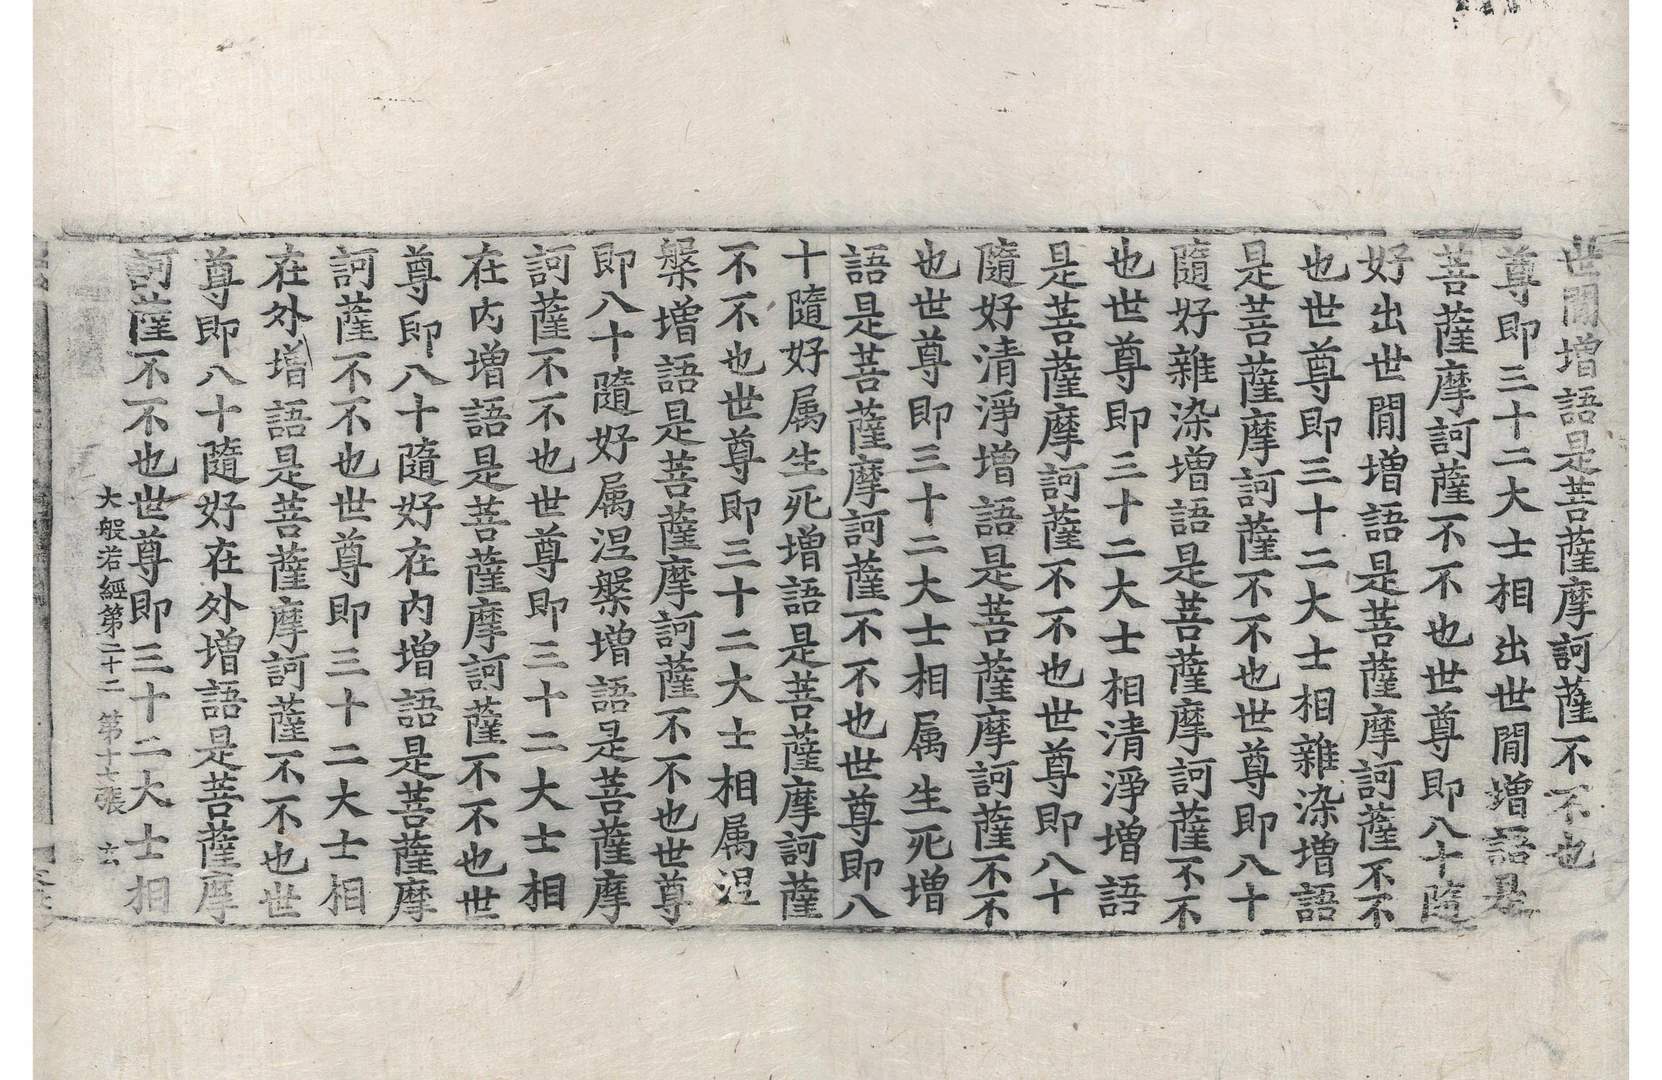 世間增語是菩薩摩訶薩不不也
尊即三十二大士相出世間增語是
菩薩摩訶薩不不也世尊即八十隨
好出世間增語是菩薩摩訶薩不不
也世尊即三十二大士相雜染增語
是菩薩摩訶薩不不也世尊即八十
隨好雜染增語是菩薩摩訶薩不不
也世尊即三十二大士相清淨增語
是菩薩摩訶薩不不也世尊即八十
隨好清淨增語是菩薩摩訶薩不不
也世尊即三十二大士相属生死增
語是菩薩摩訶薩不不也世尊即八
十隨好属生死增語是菩薩摩訶薩
不不也世尊即三十二大士相属涅
槃增語是菩薩摩訶薩不不也世尊
即八十隨好属涅槃增語是菩薩摩
訶薩不不也世尊即三十二大士相
在內增語是菩薩摩訶薩不不也世
尊即八十隨好在內增語是菩薩摩
訶薩不不也世尊即三十二大士相
在外增語是菩薩摩訶薩不不也世
尊即八十隨好在外增語是菩薩摩
訶薩不不也世尊即三十二大士相
大般若經第二十二 第十七張 玄